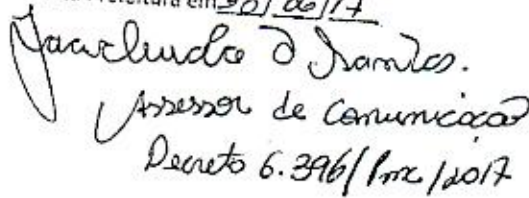 Prefeitura em 30/06/17
D Santos.
Assessor de Comunicação
Decreto 6.396/Pmc/2017